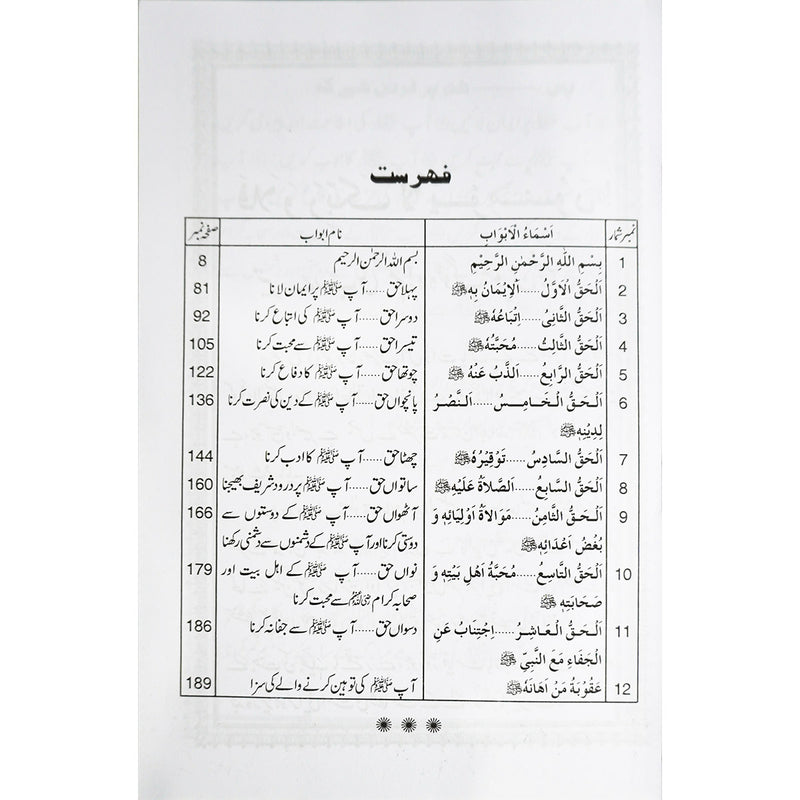 فہرست
نمبر شمار اَسْمَاءُ الْاَبْوَابِ نام ابواب صفحہ نمبر
1 بِسْمِ اللّٰهِ الرَّحْمٰنِ الرَّحِيْمِ بسم اللہ الرحمٰن الرحیم 8
2 اَلْحَقُّ الْاَوَّلُ......اَلْاِيْمَانُ بِهٖ ﷺ پہلا حق......آپ ﷺ پر ایمان لانا 81
3 اَلْحَقُّ الثَّانِیْ......اِتِّبَاعُهٗ ﷺ دوسرا حق......آپ ﷺ کی اتباع کرنا 92
4 اَلْحَقُّ الثَّالِثُ......مُحَبَّتُهٗ ﷺ تیسرا حق......آپ ﷺ سے محبت کرنا 105
5 اَلْحَقُّ الرَّابِعُ......اَلذَّبُّ عَنْهُ ﷺ چوتھا حق......آپ ﷺ کا دفاع کرنا 122
6 اَلْحَقُّ الْخَامِسُ......اَلنَّصْرُ پانچواں حق......آپ ﷺ کے دین کی نصرت کرنا 136
لِدِيْنِهٖ ﷺ
7 اَلْحَقُّ السَّادِسُ......تَوْقِيْرُهٗ ﷺ چھٹا حق......آپ ﷺ کا ادب کرنا 144
8 اَلْحَقُّ السَّابِعُ......اَلصَّلَاةُ عَلَيْهِ ﷺ ساتواں حق......آپ ﷺ پر درود شریف بھیجنا 160
9 اَلْحَقُّ الثَّامِنُ......مَوَالَاةُ اَوْلِيَائِهٖ وَ آٹھواں حق......آپ ﷺ کے دوستوں سے 166
بُغْضُ اَعْدَائِهٖ ﷺ دوستی کرنا اور آپ ﷺ کے دشمنوں سے دشمنی رکھنا
10 اَلْحَقُّ التَّاسِعُ......مُحَبَّةُ اَهْلِ بَيْتِهٖ وَ نواں حق......آپ ﷺ کے اہل بیت اور 179
صَحَابَتِهٖ ﷺ صحابہ کرام سے محبت کرنا
11 اَلْحَقُّ الْعَاشِرُ......اِجْتِنَابُ عَنِ دسواں حق......آپ ﷺ سے جفا نہ کرنا 186
الْجَفَاءِ مَعَ النَّبِیِّ ﷺ
12 عَقُوْبَةُ مَنْ اَهَانَهٗ ﷺ آپ ﷺ کی توہین کرنے والے کی سزا 189